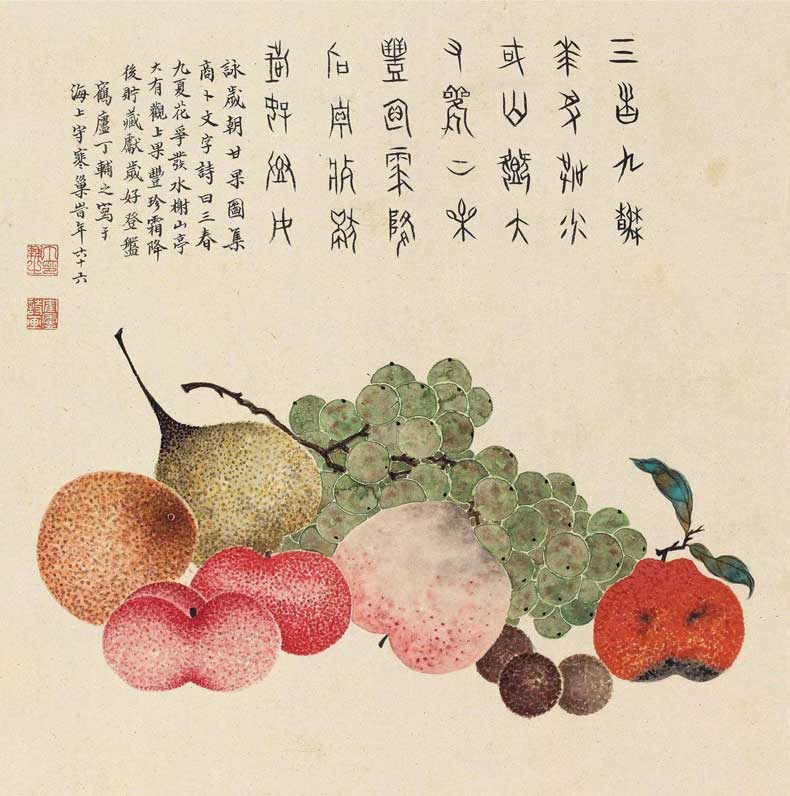 三春九夏
花爭發水
榭山亭大
有觀上果
豐珍霜降
後貯藏獻
歲好登盤
詠歲朝甘果圖集
商卜文字詩曰三春
九夏花爭發水榭山亭
大有觀上果豐珍霜降
後貯藏獻歲好登盤
鶴廬丁輔之寫于
海上守寒巢旹年六十六